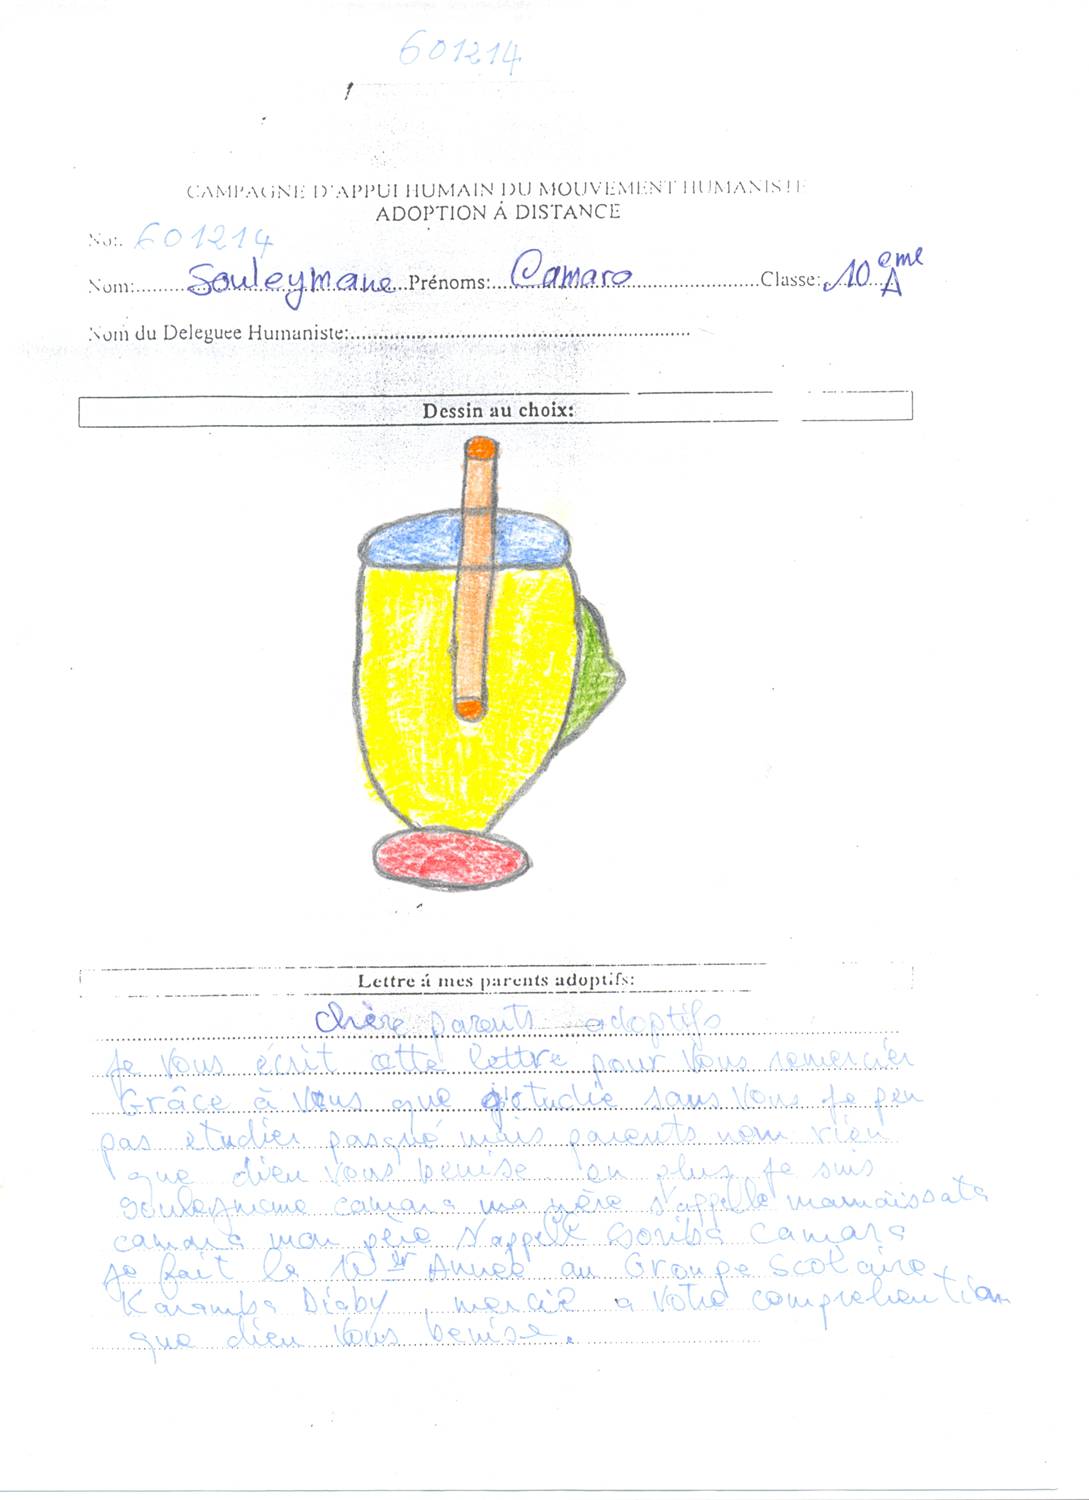 601214
CAMPAGNE D'APPUI HUMAIN DU MOUVEMENT HUMANISTE
ADOPTION Á DISTANCE
No: 601214
Nom: Souleymane Prénoms: Camara Classe: 10 eme A
Nom du Deleguee Humaniste:
Dessin au choix:
Lettre á mes parents adoptifs:
chère parents adoptifs
Je vous écrit cette lettre pour vous remercier
Grâce à vous que j'etudie sans vous Je peu
pas etudier pasqué mais parents nom rien
que dieu vous benise en plus Je suis
Souleymane camara ma mère s'appelle mamaissata
camara mon père s'appelle Soriba Camara
Je fait la Année au Groupe Scolaire
Karamba Diaby, mercie a votre comprehention
que dieu vous benise.